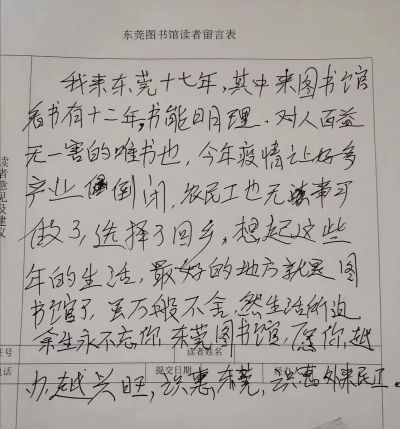 东莞图书馆读者留言表
我来东莞十七年,其中来图书馆
看书有十二年,书能明理,对人百益
无一害的唯书也,今年疫情让好多
产业倒闭,农民工也无事可
做了,选择了回乡,想起这些
年的生活,最好的地方就是图
书馆了,虽万般不舍,然生活所迫
余生永不忘你,东莞图书馆,愿你越
办越兴旺,识惠东莞,识惠外来民工。
读者意见及建议
证号
读者姓名
电话
提交日期